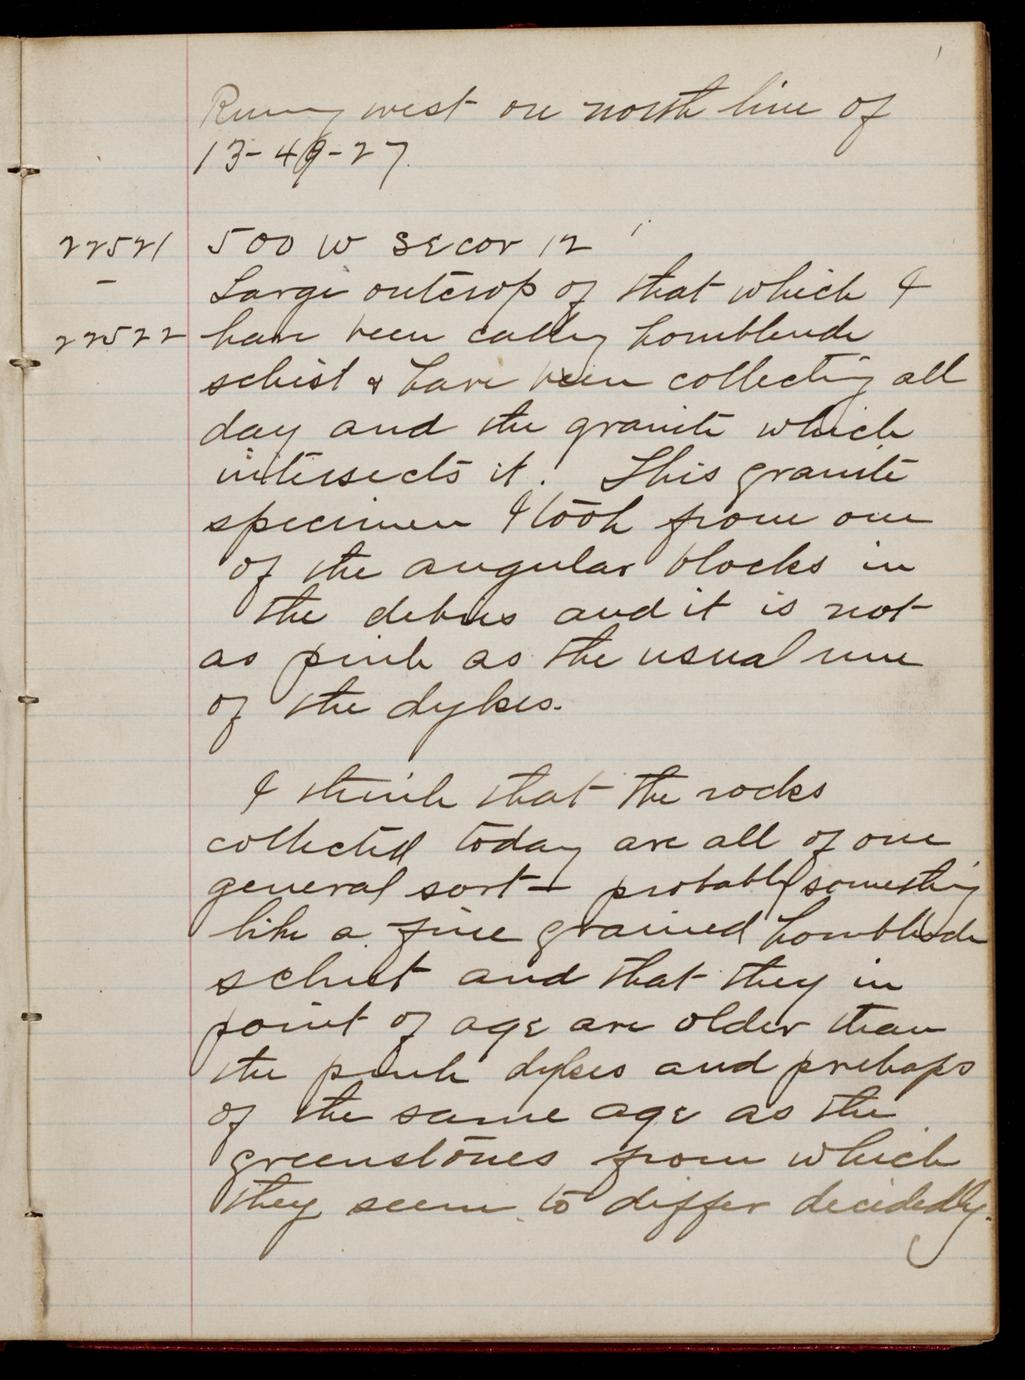 Runing west on north line of
13-49-27.
22521 500 W SE cor 12
– Large outcrop of that which I
22522 have been calling hornblende
schist & have been collecting all
day and the granite which
intersects it. This granite
specimen I took from one
of the angular blocks in
the debris and it is not
as pink as the usual run
of the dykes.
I think that the rocks
collected today are all of one
general sort – probably something
like a fine grained hornblende
schist and that they in
point of age are older than
the pink dykes and prehaps
of the same age as the
greenstones from which
they seem to differ decidedly.